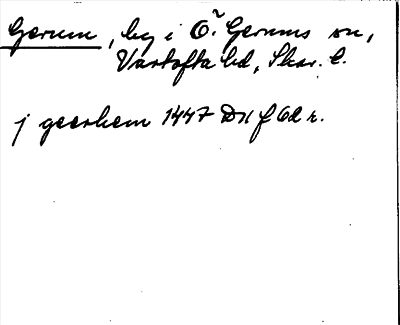 Gerum, by i Ö. Gerums sn,
Vartofta hd, Skar. l.
j geerhem 1447 DN f 62 r.